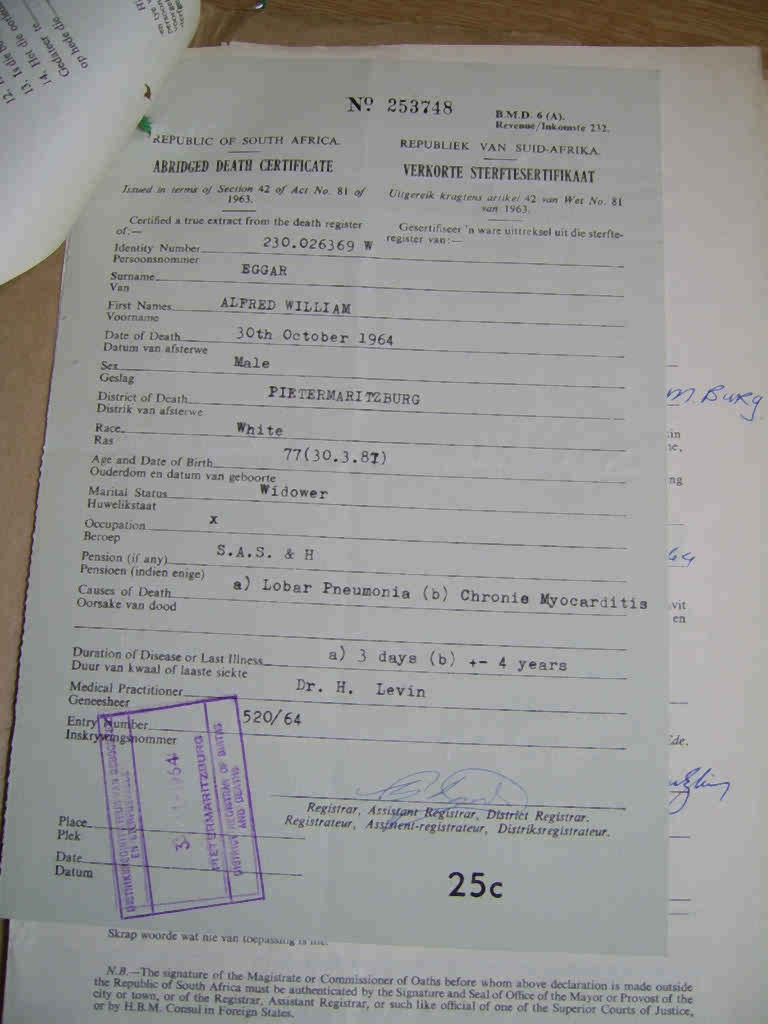 12.
13. Is die
14. Het die
Gedateer te
op hede die
Nº 253748
B.M.D. 6 (A).
Revenue/Inkomste 232.
REPUBLIC OF SOUTH AFRICA.
REPUBLIEK VAN SUID-AFRIKA.
ABRIDGED DEATH CERTIFICATE
VERKORTE STERFTESERTIFIKAAT
Issued in terms of Section 42 of Act No. 81 of
1963.
Uitgereik kragtens artikel 42 van Wet No. 81
van 1963.
Certified a true extract from the death register
of:—
Gesertifiseer 'n ware uittreksel uit die sterfte-
register van:—
Identity Number 230.026369 W
Persoonsnommer
Surname EGGAR
Van
First Names ALFRED WILLIAM
Voorname
Date of Death 30th October 1964
Datum van afsterwe
Sex Male
Geslag
District of Death PIETERMARITZBURG
Distrik van afsterwe
Race White
Ras
Age and Date of Birth 77(30.3.87)
Ouderdom en datum van geboorte
Marital Status Widower
Huwelikstaat
Occupation x
Beroep
Pension (if any) S.A.S. & H
Pensioen (indien enige)
Causes of Death a) Lobar Pneumonia (b) Chronic Myocarditis
Oorsake van dood
Duration of Disease or Last Illness a) 3 days (b) +- 4 years
Duur van kwaal of laaste siekte
Medical Practitioner Dr. H. Levin
Geneesheer
Entry Number 520/64
Inskrywingsnommer
PIETERMARITZBURG
DISTRICT REGISTRAR OF BIRTHS
AND DEATHS
Registrar, Assistant Registrar, District Registrar.
Registrateur, Assistent-registrateur, Distriksregistrateur.
Place
Plek
Date
Datum
25c
M. Burg.
Skrap woorde wat nie van toepassing is nie.
N.B.—The signature of the Magistrate or Commissioner of Oaths before whom above declaration is made outside
the Republic of South Africa must be authenticated by the Signature and Seal of Office of the Mayor or Provost of the
city or town, or of the Registrar, Assistant Registrar, or such like official of one of the Superior Courts of Justice,
or by H.B.M. Consul in Foreign States.